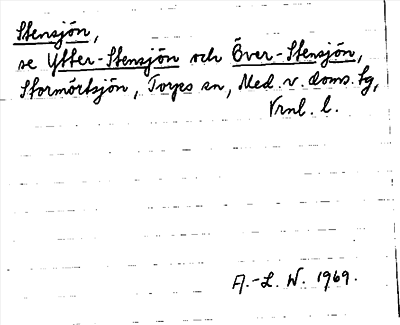 Stensjön,
se Ytter-Stensjön och Över-Stensjön,
Stormörtsjön, Torps sn, Med. v. doms. tg,
Vrnl. l.
A.-L. W. 1969.